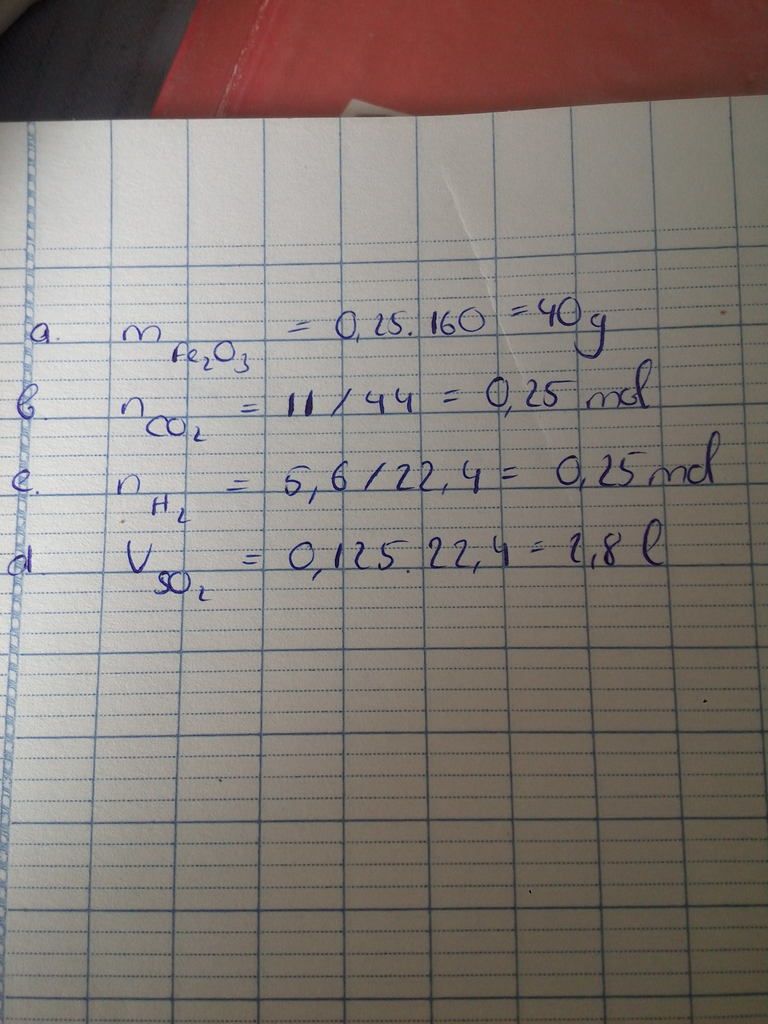 a. m Fe₂O₃ = 0,25.160 = 40g
b n CO₂ = 11/44 = 0,25 mol
c. n H₂ = 5,6/22,4 = 0,25 mol
d V SO₂ = 0,125.22,4 = 2,8 l